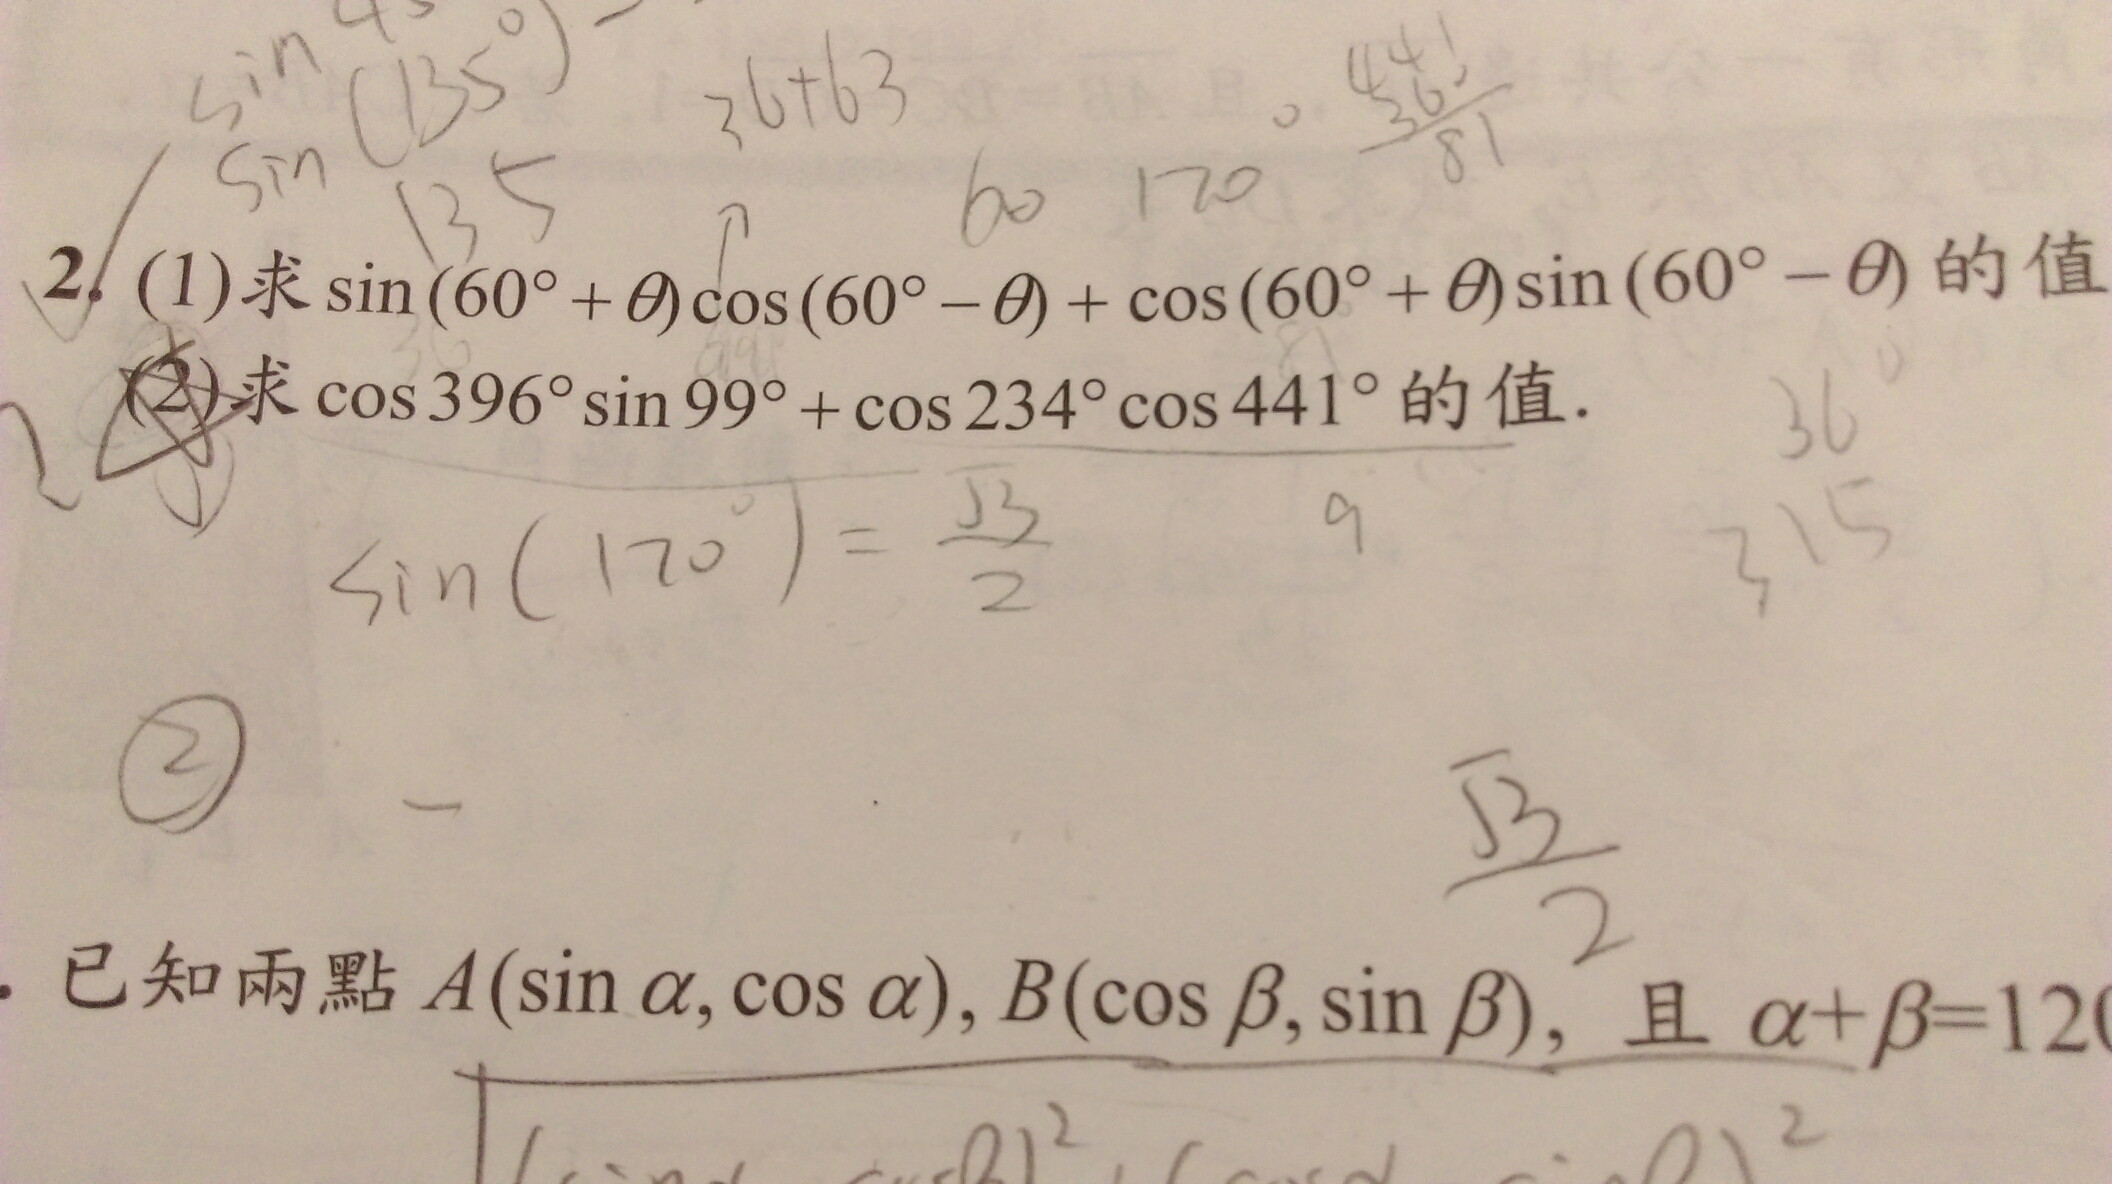 sin 45
sin (135°)
135
36+63
60 120°
441
361
81
2. (1)求 sin(60°+θ)cos(60°−θ)+cos(60°+θ)sin(60°−θ) 的值
(2)求 cos396°sin99°+cos234°cos441° 的值.
36°
sin(120°)=√3/2
9
315
②
−
√3/2
. 已知兩點 A(sin α, cos α), B(cos β, sin β), 且 α+β=120